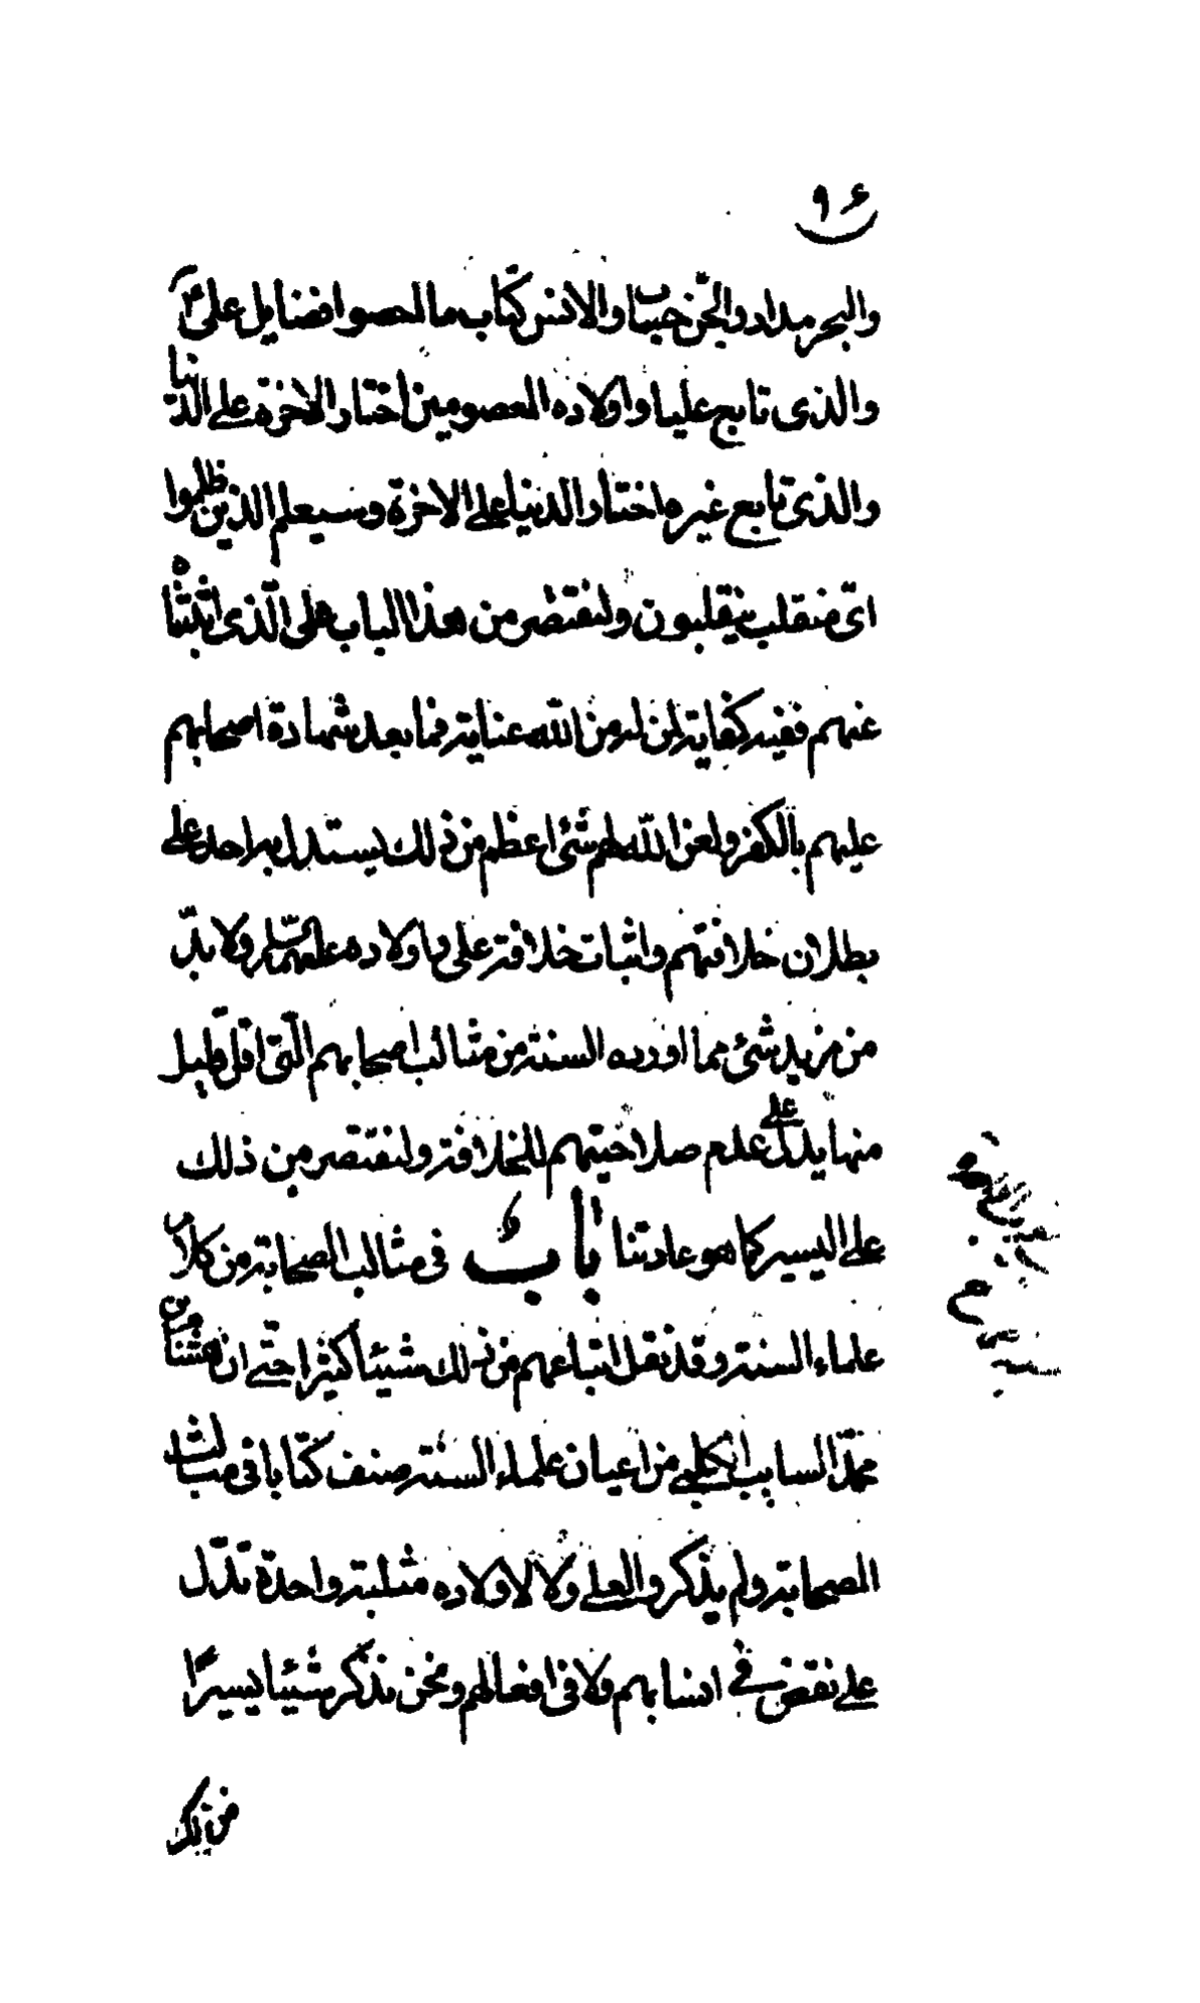 ٩٤
والبحر مداد والجن حساب والانس كتاب ما احصوا فضايل علي ع
والذى تابع عليا واولاده المعصومين اختار الاخرة على الدنيا
والذى تابع غيره اختار الدنيا على الاخرة وسيعلم الذين ظلموا
اىّ منقلب ينقلبون ولنقتصر من هذا الباب على الّذى اثبتناه
عنهم ففيه كفاية لمن له من الله عناية فما بعد شهادة اصحابهم
عليهم بالكفر ولعن الله لهم شئ اعظم من ذلك يستدل به احد على
بطلان خلافتهم واثبات خلافة علي واولاده عليهم السلام ولا بدّ
من مزيد شئ مما اورده السنة من مثالب اصحابهم الّتى اقلّ قليل
منها يدل على عدم صلاحيتهم للخلافة ولنقتصر من ذلك
على اليسير كما هو عادتنا باب في مثالب الصحابة من كلام
علماء السنة وقد نقل اتباعهم من ذلك شيئا كثيرا حتى ان هشام بن
محمد السايب الكلبي من اعيان علماء السنة صنف كتابا في مثالب
الصحابة ولم يذكروا لعلي ولا لاولاده مثلبة واحدة تدّل
على نقض في انسابهم ولا في افعالهم ونحن نذكر شيئا يسيرًا
من تلك